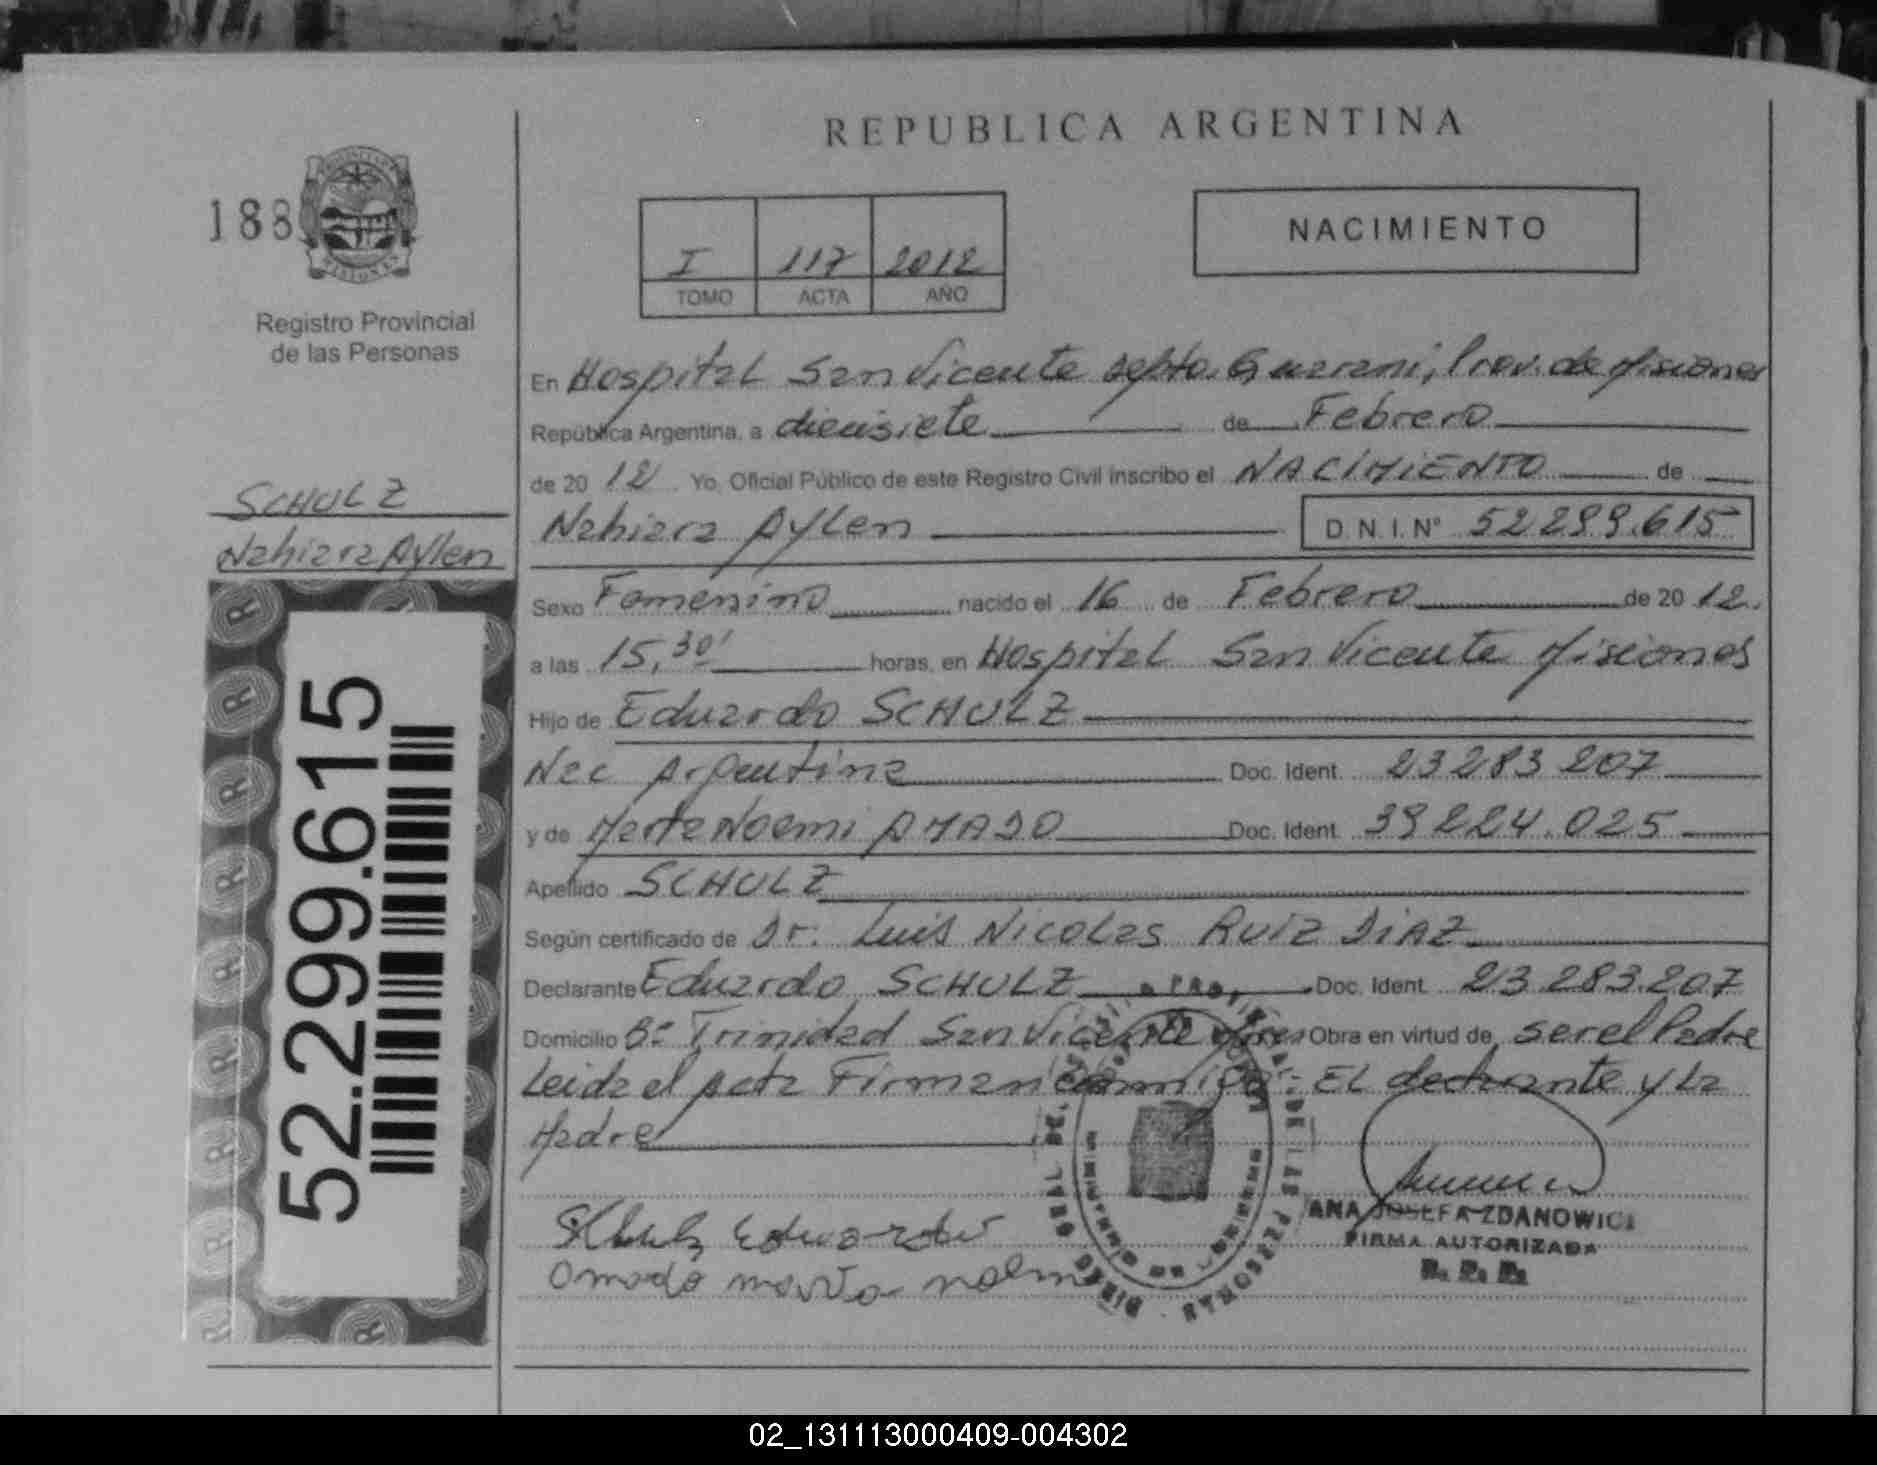 REPUBLICA ARGENTINA
188
MISIONES
Registro Provincial
de las Personas
I 117 2012
TOMO ACTA AÑO
NACIMIENTO
En Hospital San Vicente Depto. Guarani, Prov. de Misiones
República Argentina, a diecisiete de Febrero
de 20 12 Yo, Oficial Público de este Registro Civil inscribo el NACIMIENTO de
SCHULZ
Nahiara Aylen
Nahiara Aylen D.N.I. Nº 52299.615
Sexo Femenino nacido el 16 de Febrero de 20 12.
a las 15,30' horas, en Hospital San Vicente Misiones
Hijo de Eduardo SCHULZ
Nac Argentina Doc. Ident. 23283207
y de Marta Noemi AMADO Doc. Ident. 39224.025
Apellido SCHULZ
Según certificado de Dr. Luis Nicolas RUIZ DIAZ
Declarante Eduardo SCHULZ Doc. Ident. 23.283.207
Domicilio Bº Trinidad San Vicente Mnes Obra en virtud de ser el Padre
Leida el acta Firman conmigo: EL declarante y La
Madre
52.299.615
Schulz Eduardo
Amado marta noemi
ANA JOSEFA ZDANOWICZ
FIRMA AUTORIZADA
R. P. P.
02_131113000409-004302